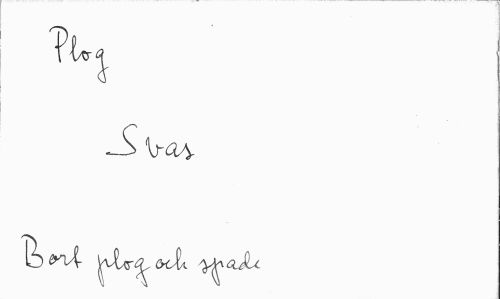 Plog
Svas
Bort plog och spade